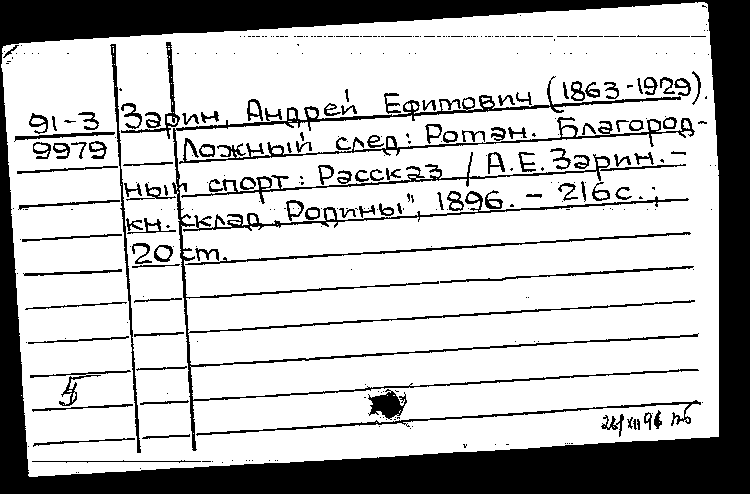 91-3 Зарин, Андрей Ефимович (1863-1929).
9979 Ложный след: Роман. Благород-
ный спорт: Рассказ / А.Е.Зарин. -
кн. склад „Родины", 1896. - 216с.;
20 ст.